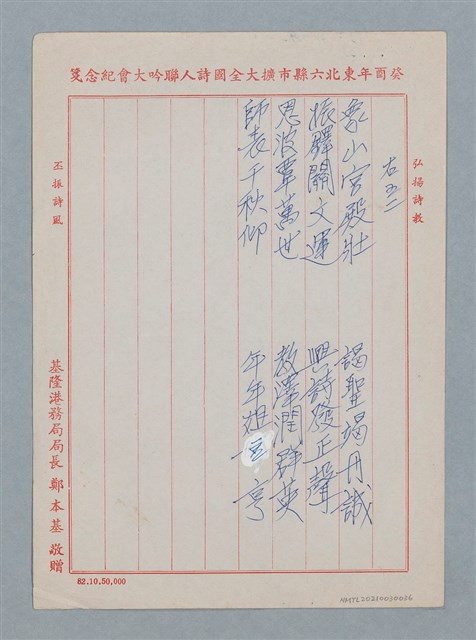 癸酉年東北六縣市擴大全國詩人聯吟大會紀念箋
弘揚詩教
右五二
象山宮殿壯　謁聖竭丹誠
振鐸開文運　興詩發正聲
恩波覃萬世　教澤潤群英
師表千秋仰　年年俎豆亨
丕振詩風
基隆港務局局長 鄭本基 敬贈
82.10.50,000
NMTL20210030036